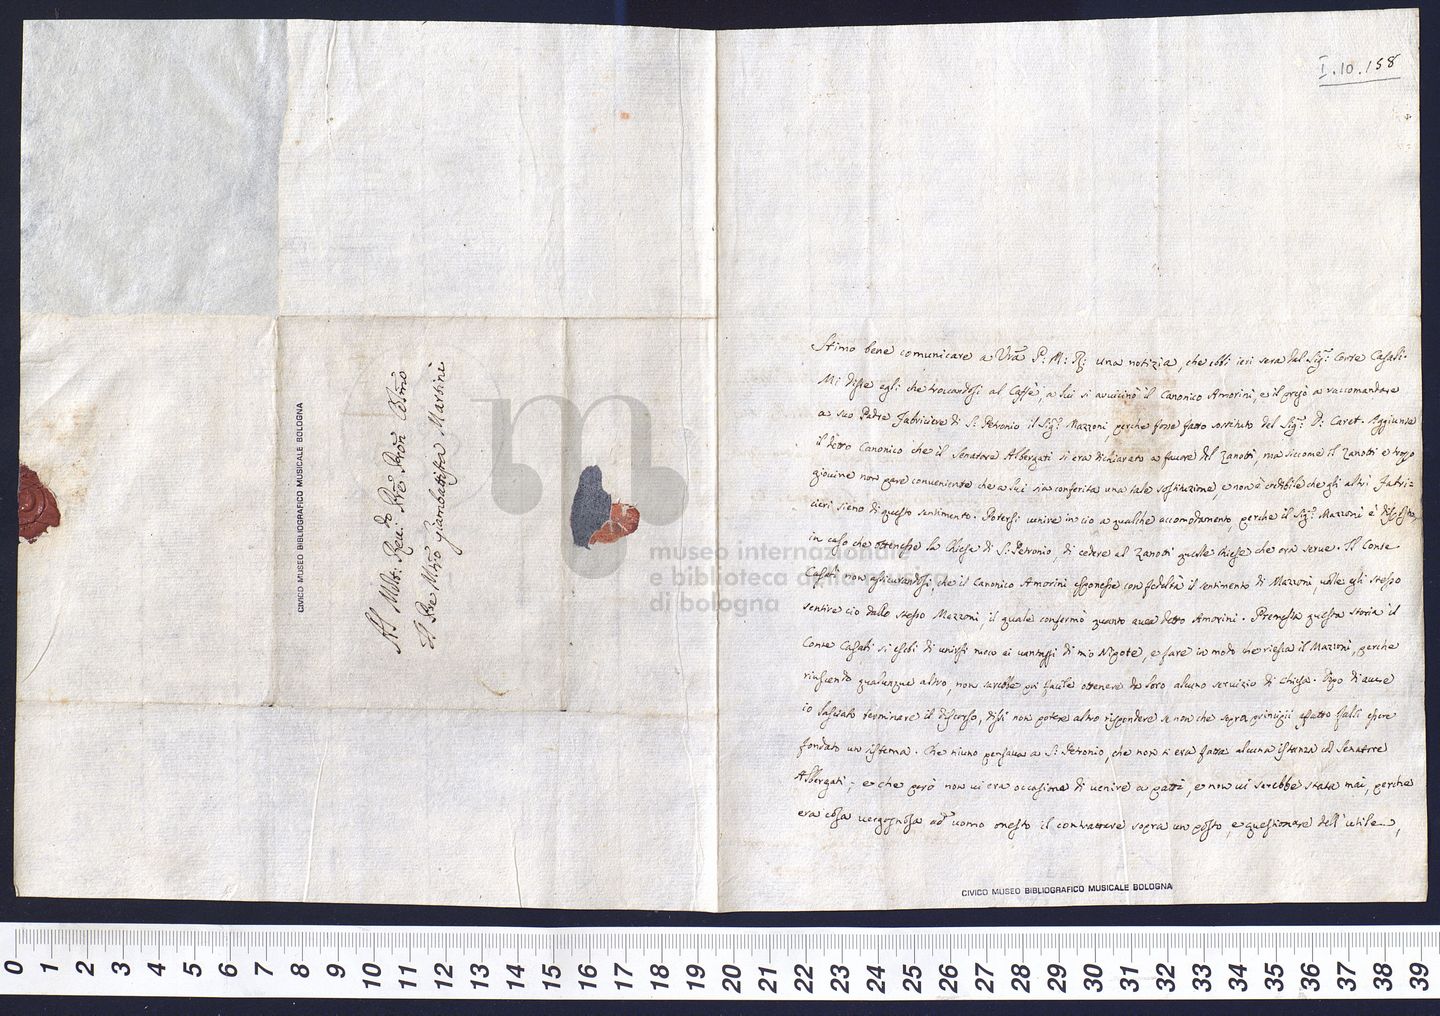 Al Mlto: Reu:do Pre Pron Cosmo
Il Pre Mtro Giambattista Martini
CIVICO MUSEO BIBLIOGRAFICO MUSICALE BOLOGNA
museo internazionale
e biblioteca della musica
di bologna
I.10.158
Stimo bene comunicare a Vra P: M: R: una notizia, che ebbi ieri sera dal Sigr Conte Casali.
Mi disse egli che trovandosi al Caffè, a lui si avvicinò il Canonico Amorini, e il pregò a raccomandare
a suo Padre Fabriciere di S: Petronio il Sigr Mazzoni perche fosse fatto sostituto del Sigr D: Caret. Aggiunse
il detto Canonico che il Senatore Albergati si era dichiarato a favore del Zanotti, ma siccome il Zanotti e troppo
giovine non pare conveniente che a lui sia conferita una tale sostituzione, e non è credibile che gli altri Fabri-
cieri sieno di questo sentimento. Potersi venire in cio a qualche accomodamento, perche il Sigr Mazzoni è disposto,
in caso che ottenga la Chiesa di S: Petronio, di cedere al Zanotti quelle Chiese che ora serve. Il Conte
Casali non assicurandosi, che il Canonico Amorini esponesse con fedeltà il sentimento di Mazzoni, volle egli stesso
sentire cio dallo stesso Mazzoni, il quale confermò quanto avea detto Amorini. Premessa questa storia il
Conte Casali si esibì di unirsi meco ai vantaggi di mio Nipote, e fare in modo che riesca il Mazzoni, perche
riuscendo qualunque altro, non sarebbe poi facile ottenere da loro alcuno servizio di Chiesa. Dopo di avere
io lasciato terminare il discorso, dissi non potere altro rispondere se non che sopra principii affatto falsi essere
fondato un sistema. Che niuno pensava a S: Petronio, che non si era fatta alcuna istanza al Senatore
Albergati; e che però non vi era occasione di venire a patti, e non vi sarebbe stata mai, perche
era cosa vergognosa ad uomo onesto il contrattare sopra un posto, e questionare dell'utile,
CIVICO MUSEO BIBLIOGRAFICO MUSICALE BOLOGNA
0 1 2 3 4 5 6 7 8 9 10 11 12 13 14 15 16 17 18 19 20 21 22 23 24 25 26 27 28 29 30 31 32 33 34 35 36 37 38 39